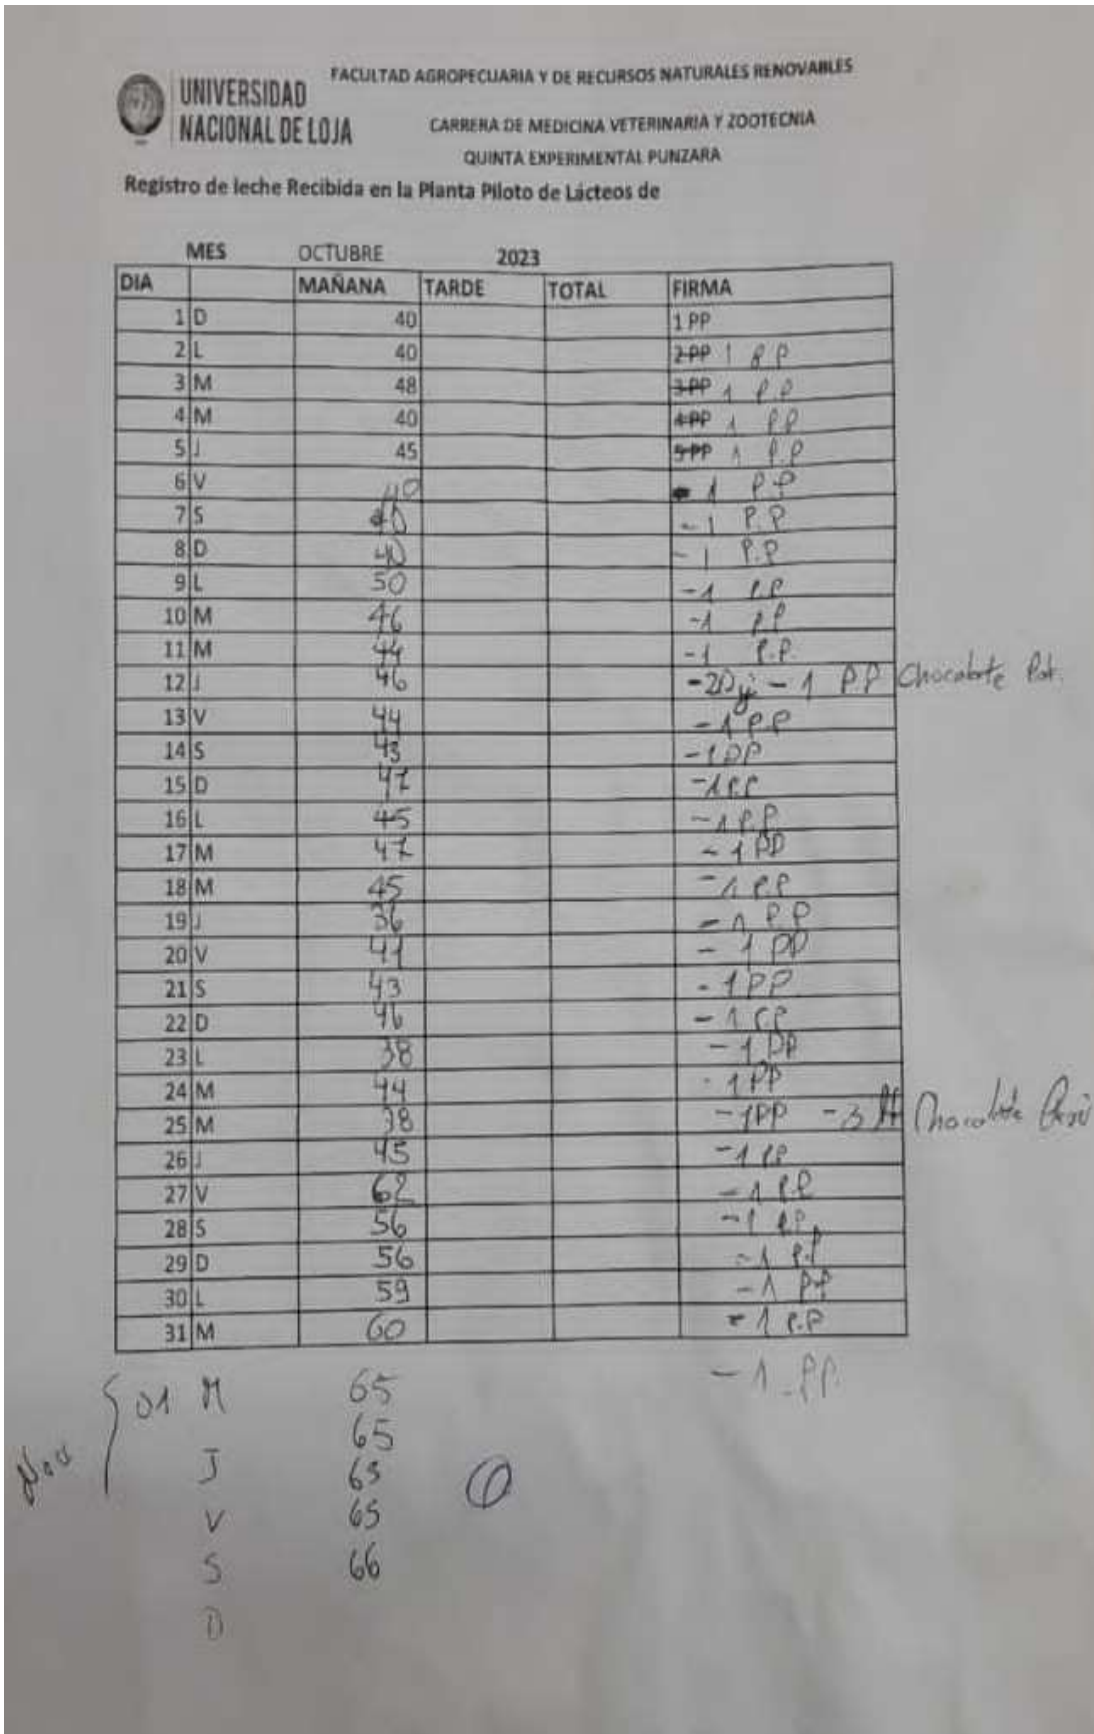 FACULTAD AGROPECUARIA Y DE RECURSOS NATURALES RENOVABLES
UNIVERSIDAD
NACIONAL DE LOJA
CARRERA DE MEDICINA VETERINARIA Y ZOOTECNIA
QUINTA EXPERIMENTAL PUNZARA
Registro de leche Recibida en la Planta Piloto de Lácteos de
MES OCTUBRE 2023
DIA MAÑANA TARDE TOTAL FIRMA
1 D 40 1 PP
2 L 40 2 PP 1 P.P
3 M 48 3 PP 1 P.P
4 M 40 4 PP 1 PP
5 J 45 5 PP 1 P.P
6 V 40 - 1 P.P
7 S 40 - 1 P.P
8 D 40 - 1 P.P
9 L 50 - 1 P.P
10 M 46 - 1 PP
11 M 44 - 1 P.P.
12 J 46 - 1 PP Chocolate
13 V 44 - 1 PP
14 S 43 - 1 PP
15 D 47 - 1 P.P
16 L 45 - 1 P.P
17 M 47 - 1 PP
18 M 45 - 1 P.P
19 J 36 - 1 P.P
20 V 41 - 1 PP
21 S 43 - 1 PP
22 D 46 - 1 PP
23 L 38 - 1 PP
24 M 44 - 1 PP
25 M 38 - 1PP - 3 Chocolate
26 J 45 - 1 PP
27 V 62 - 1 P.P
28 S 56 - 1 P.P.
29 D 56 - 1 P.P
30 L 59 - 1 P.P
31 M 60 - 1 P.P
Nov 01 M 65 - 1 P.P.
65
J 65
V 65
S 66
D